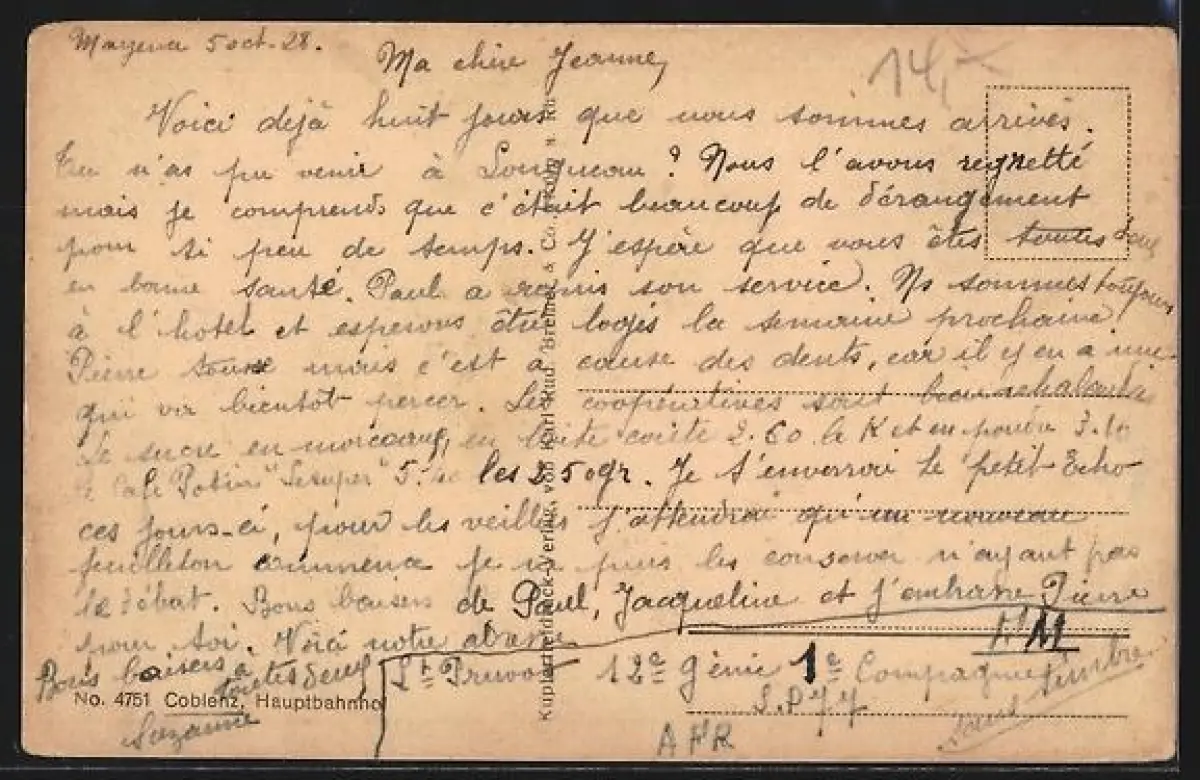 5 oct. 28.
Ma chère Jeanne,
14,-
Voici déjà huit jours que nous sommes arrivés.
Tu n'as pu venir à Longueau ? Nous l'avons regretté
mais je comprends que c'était beaucoup de dérangement
pour si peu de temps. J'espère que vous êtes toutes deux
en bonne santé. Paul a repris son service. Ns sommes toujours
à l'hôtel et espérons être logés la semaine prochaine.
Pierre tousse mais c'est à cause des dents, car il y en a une
qui va bientôt percer. Les coopératives sont
Le sucre en morceaux, en boîte coûte 2.60 le K et en poudre 3.10
le café Potin " 5. les 250gr. Je t'enverrai le petit Echo
ces jours-ci, pour les veillées j'attendrai qu'un nouveau
feuilleton commence je ne puis les conserver n'ayant pas
le début. Bons baisers de Paul, Jacqueline et j'embrasse Pierre
pour toi. Voici notre adresse
Bons baisers à toutes deux
Suzanne
Lt Pruvot 12e Génie 1e Compagnie
S.P 77
AFR
sans timbre
No. 4751 Coblenz, Hauptbahnhof